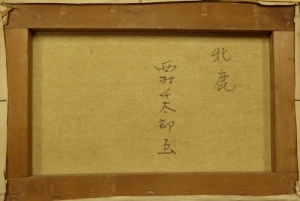 北鹿
西村千太郎画